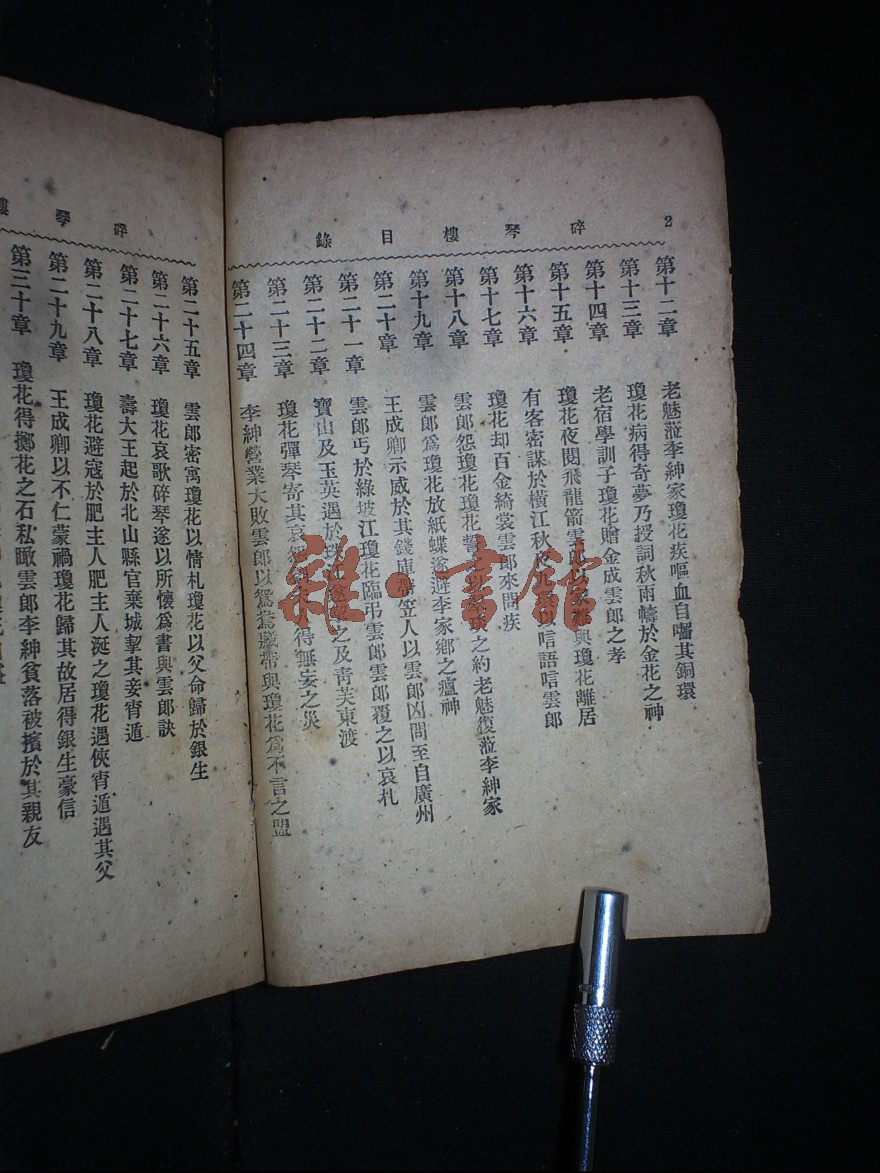 2
碎琴樓目錄
第十二章 老魅蒞李紳家瓊花疾嘔血自囓其銅環
第十三章 瓊花病得奇夢乃授詞秋雨幬於金花之神
第十四章 老宿學訓子瓊花贈金成雲郎之孝
第十五章 瓊花夜閱飛龍箭雲郎以家難與瓊花離居
第十六章 有客密謀於橫江秋 以唁語唁雲郎
第十七章 瓊花却百金綺裳雲郎來問疾
第十八章 雲郎怨瓊花瓊花誓之以 之約老魅復蒞李紳家
第十九章 雲郎爲瓊花放紙蝶遂避李家鄉之瘟神
第二十章 王成卿示威於其錢庫帶笠人以雲郎凶問至自廣州
第二十一章 雲郎丐於綠坡江瓊花臨弔雲郎雲郎覆之以哀札
第二十二章 寶山及玉英遇於 之及青芙東渡
第二十三章 瓊花彈琴寄其哀 得無妄之災
第二十四章 李紳營業大敗雲郎以鴛鴦 帶與瓊花爲不言之盟
碎琴樓
第二十五章 雲郎密寓瓊花以情札瓊花以父命歸於銀生
第二十六章 瓊花哀歌碎琴遂以所懷爲書與雲郎訣
第二十七章 壽大王起於北山縣官棄城挈其妾宵遁
第二十八章 瓊花避寇於肥主人肥主人涎之瓊花遇俠宵遁遇其父
第二十九章 王成卿以不仁蒙禍瓊花歸其故居得銀生豪信
第三十章 瓊花得擲花之石私瞰雲郎李紳貧落被擯於其親友
雜·書館